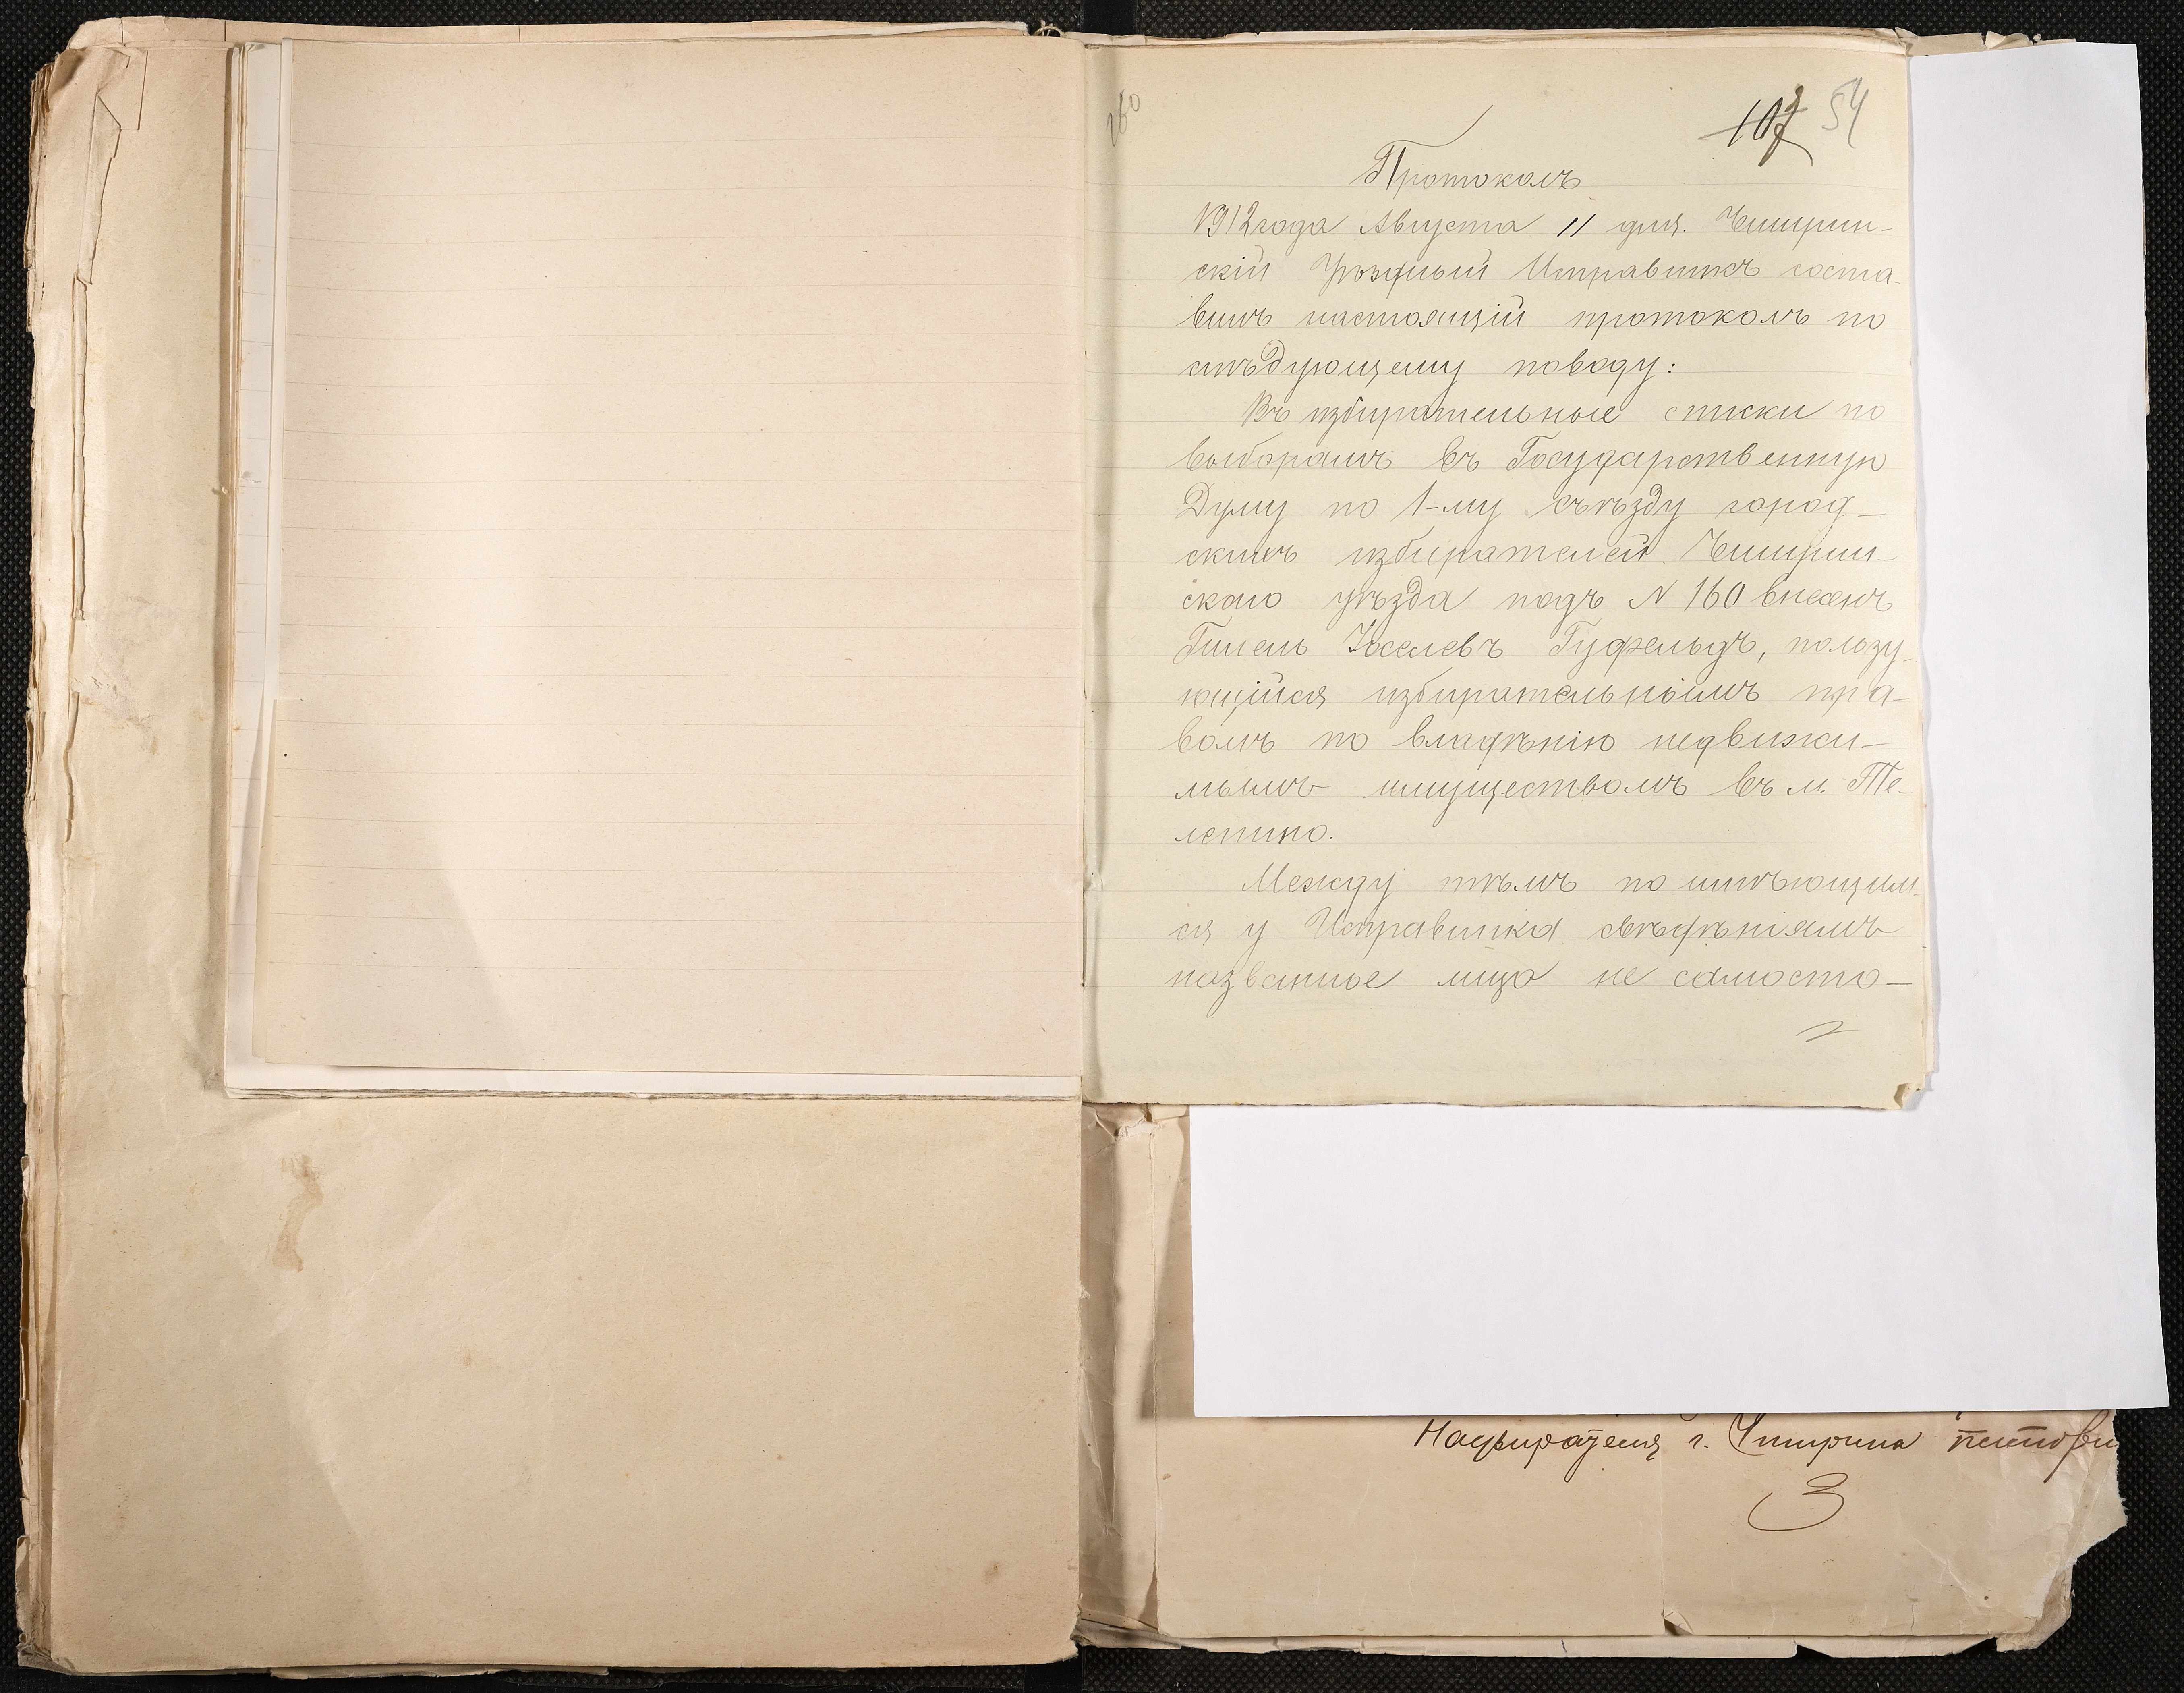 160
107 54
Протоколъ
1912 года Августа 11 дня. Чигирин-
скій Уѣздный Исправникъ соста-
вилъ настоящій протоколъ по
слѣдующему поводу:
Въ избирательные списки по
выборамъ въ Государственную
Думу по 1-му съѣзду город-
скихъ избирателей Чигирин-
скаго уѣзда подъ N 160 внесенъ
Гилель Хаселевъ Гуфельдъ, пользу-
ющійся избирательнымъ пра-
вомъ по владѣнію недвижи-
мымъ имуществомъ въ м. Те-
лепино.
Между тѣмъ по имѣющим-
ся у Исправника свѣдѣніямъ
названное лицо не самосто-
Надзирателя г. Чигирина
3